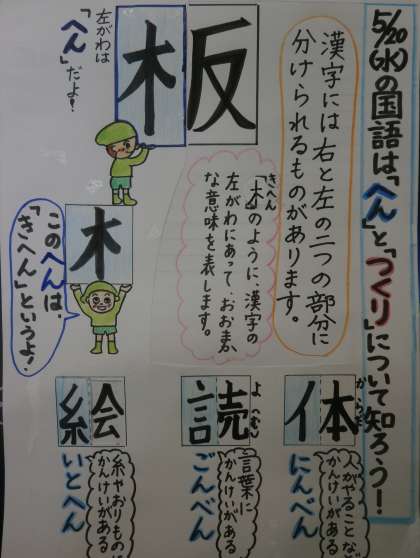 5/20(水)の国語は、「へん」と「つくり」について知ろう！
漢字には右と左の二つの部分に
分けられるものがあります。
板
左がわは
「へん」だよ！
きへん
「木」のように、漢字の
左がわにあって、おおまか
な意味を表します。
木
このへんは、
「きへん」というよ！
からだ
体
人がやることなど
かんけいがある
にんべん
よ
読
言葉に
かんけいがある
ごんべん
絵
糸やおりものに
かんけいがある
いとへん